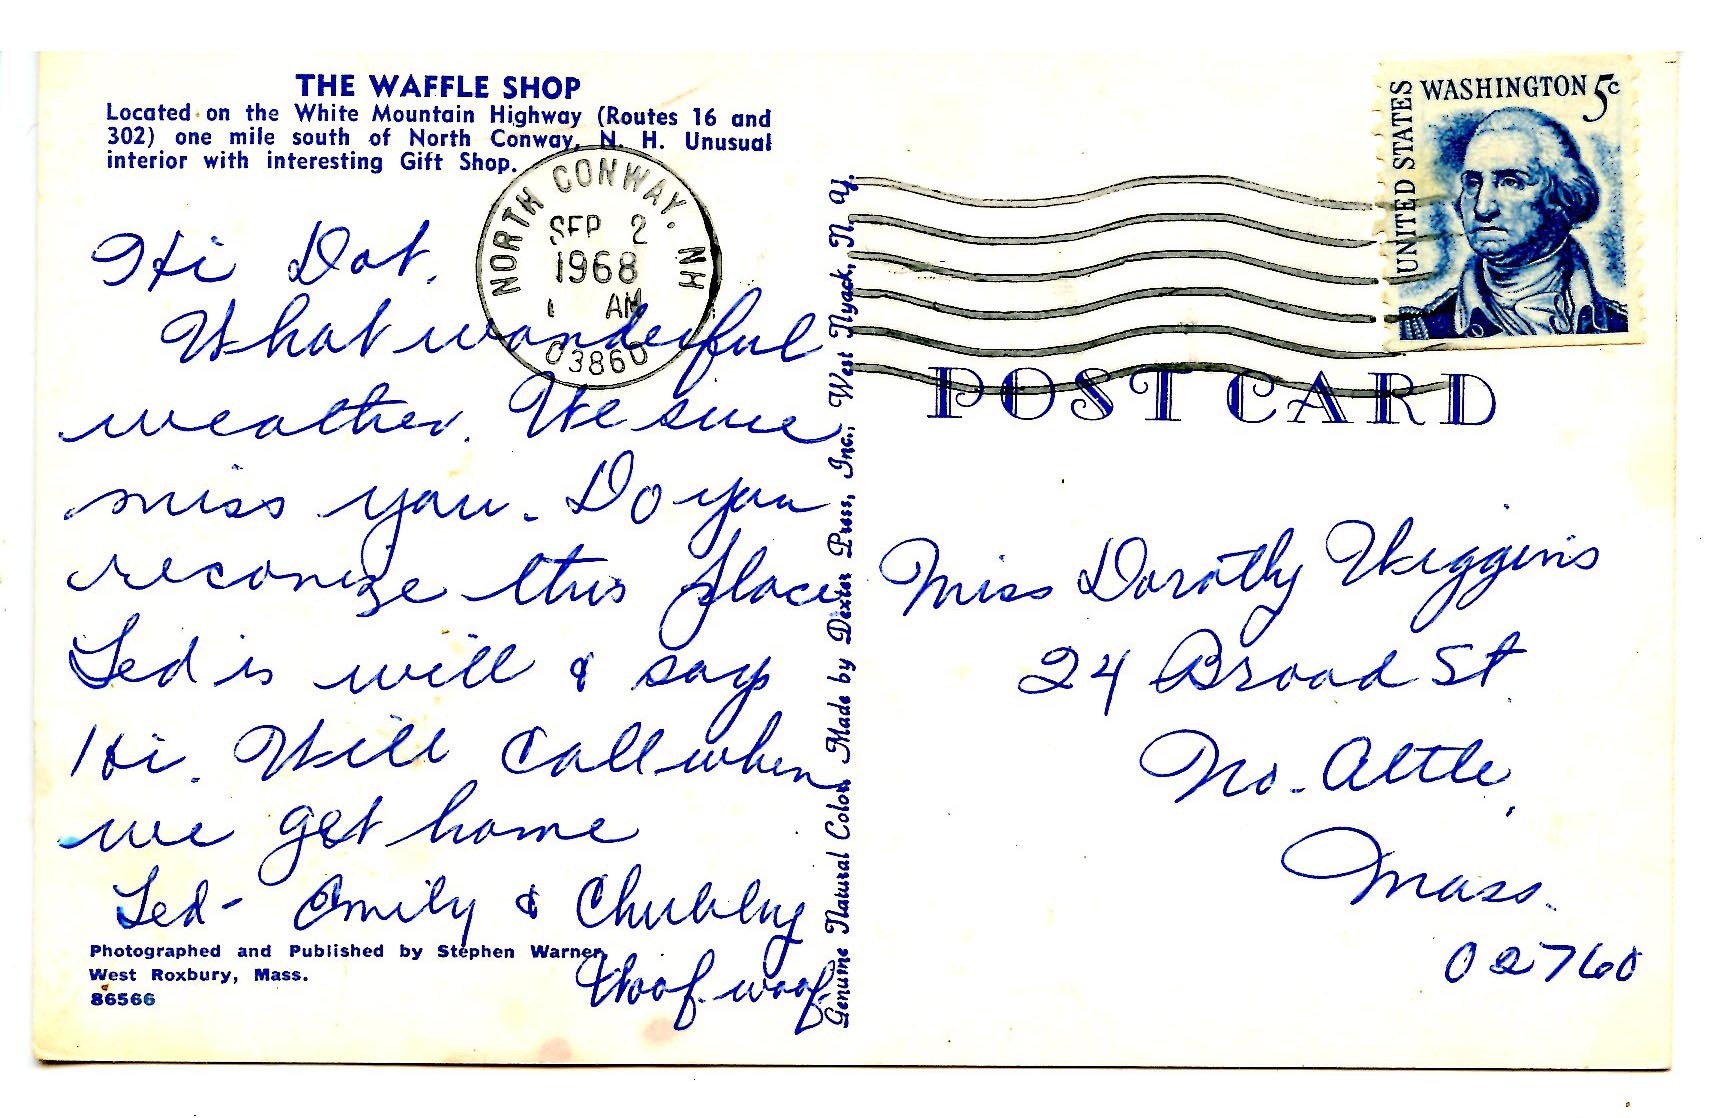 THE WAFFLE SHOP
Located on the White Mountain Highway (Routes 16 and
302) one mile south of North Conway, N. H. Unusual
interior with interesting Gift Shop.
NORTH CONWAY. NH
SEP 2
1968
1 AM
03860
Hi Dot.
What wonderful
weather. We sure
miss you. Do you
reconize this place
Ted is well & says
Hi. Will call when
we get home
Ted - Emily & Chubby
Woof-woof.
Photographed and Published by Stephen Warner,
West Roxbury, Mass.
86566
Genuine Natural Color Made by Dexter Press, Inc., West Nyack, N. Y.
UNITED STATES
WASHINGTON 5c
POST CARD
Miss Dorothy Wiggins
24 Broad St.
No. Attle,
Mass.
02760